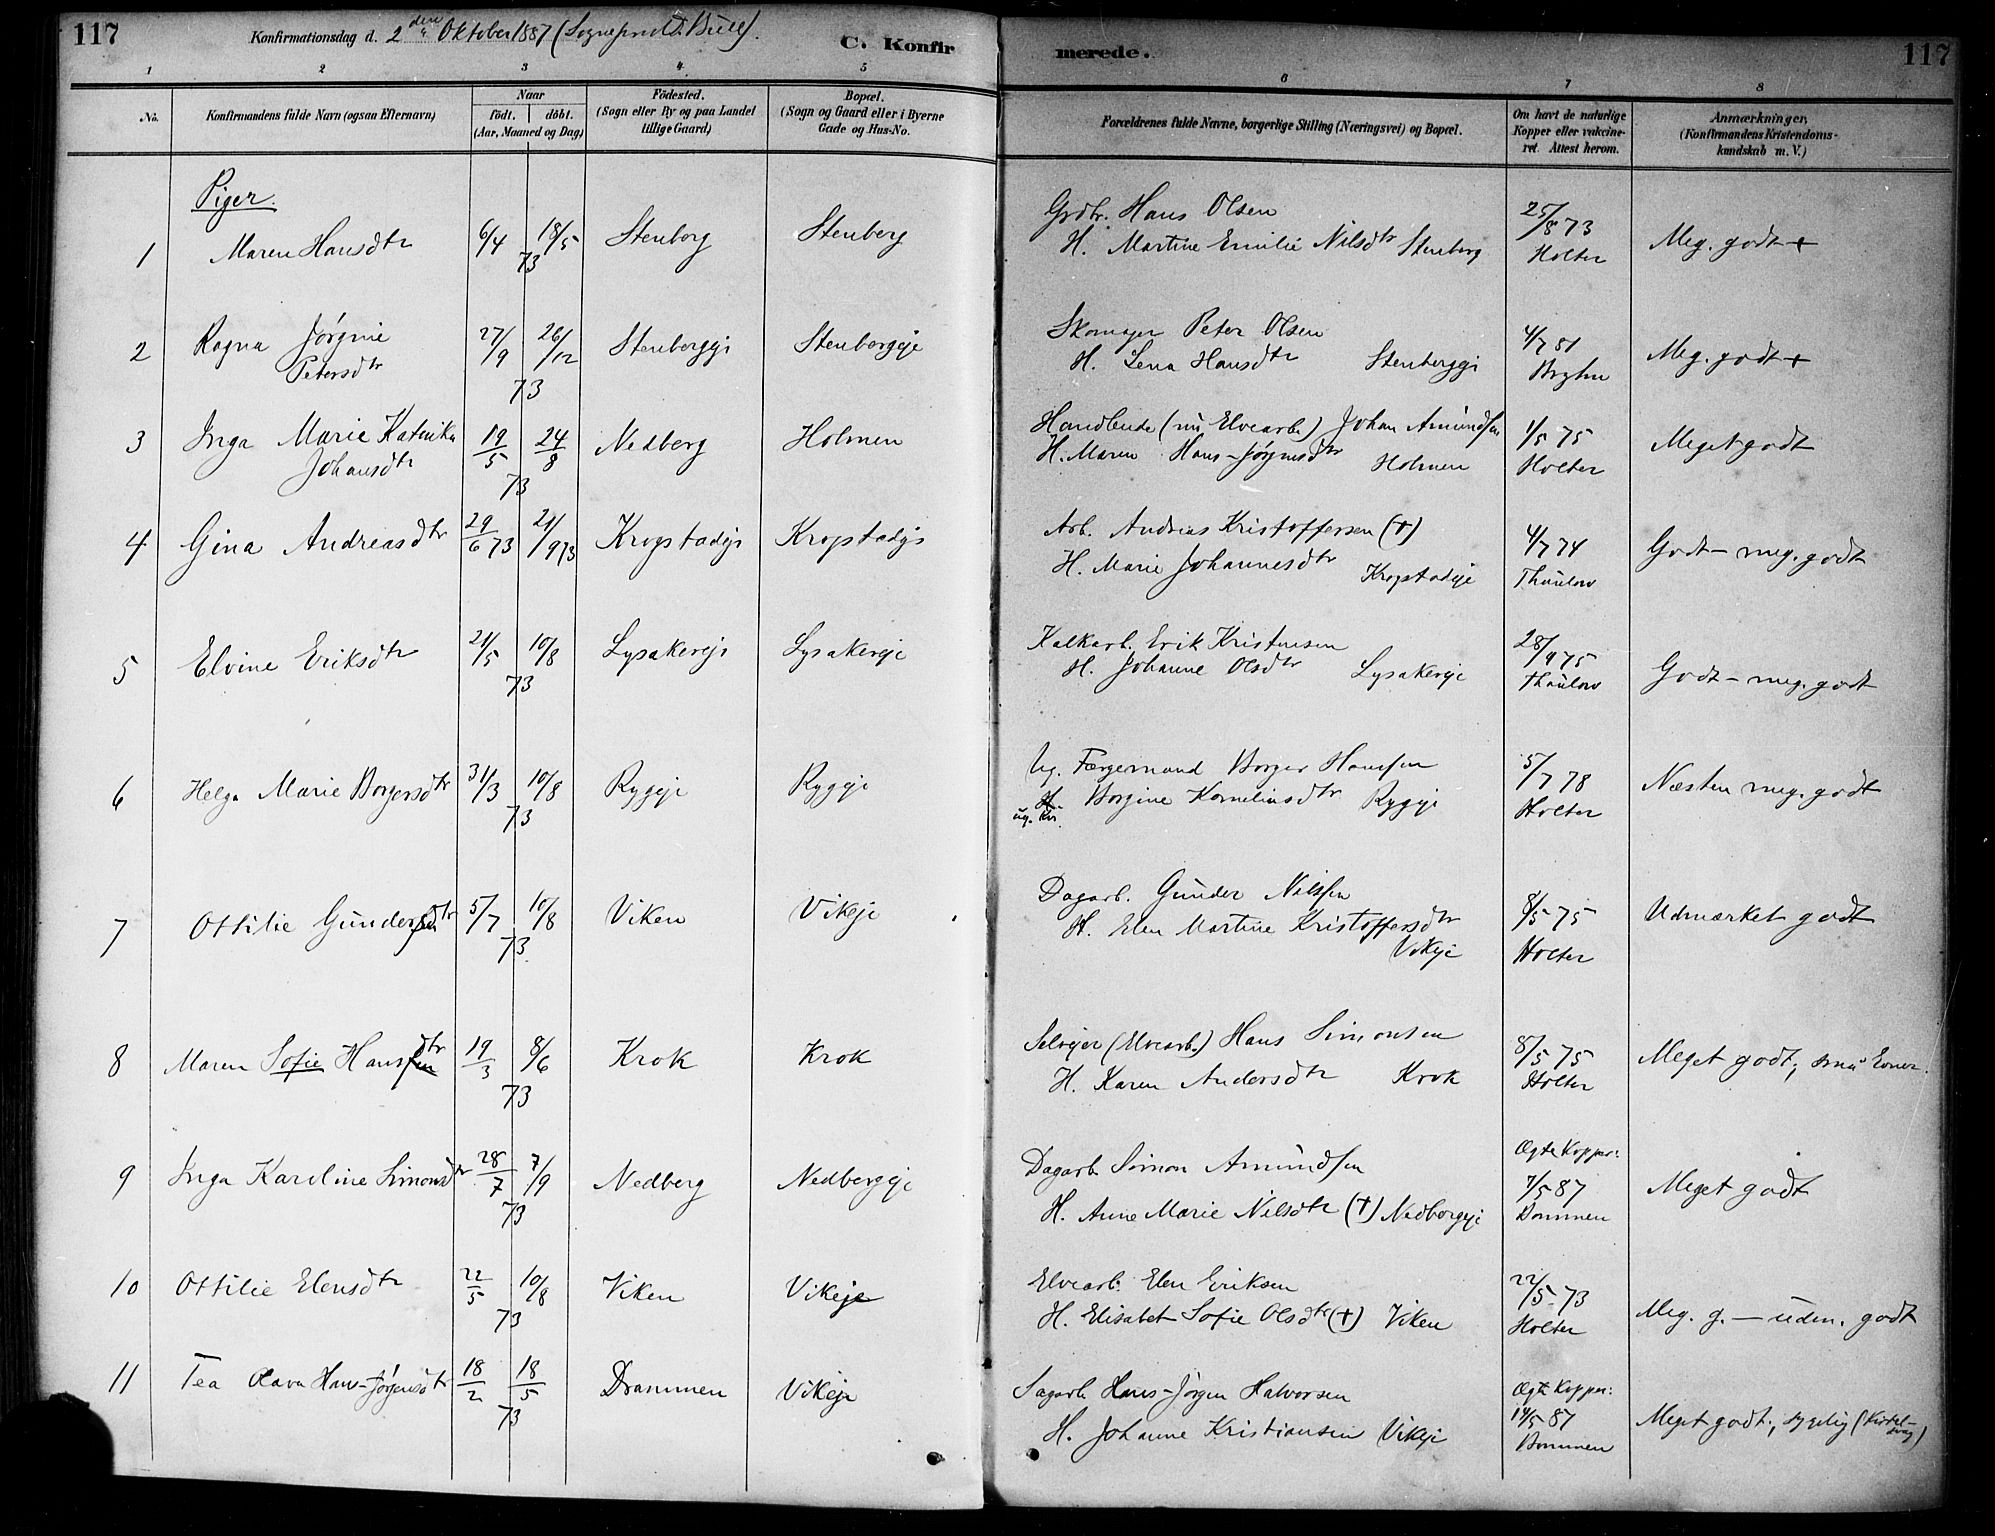 117
Konfirmationsdag d. 2den Oktober 1887 (Sogneprest Bull).
C. Konfir
merede.
117
1 2 3 4 5 6 7 8
No.
Konfirmandens fulde Navn (ogsaa Efternavn)
Naar
födt. döbt.
(Aar, Maaned og Dag)
Födested.
(Sogn eller By og paa Landet
tillige Gaard)
Bopæl.
(Sogn og Gaard eller i Byerne
Gade og Hus-No.
Forældrenes fulde Navne, borgerlige Stilling (Næringsvei) og Bopæl.
Om havt de naturlige
Kopper eller vakcine-
ret. Attest herom.
Anmærkninger,
(Konfirmandens Kristendoms-
kundskab m. V.)
Piger.
1 Maren Hansdtr 6/4 18/5 73 Stenberg Stenberg
Grdbr. Hans Olsen
H. Martine Emilie Nilsdtr Stenberg
25/8 73
Holter
Meg. godt +
2 Ragna Jørgine
Petersdtr
27/9 26/12 73 Stenbergeje Stenbergeje
Skomager Peter Olsen
H. Lena Hansdtr Stenbergeje
4/7 81
Meg. godt +
3 Inga Marie Katrika
Johansdtr
19/5 24/8 73 Nedberg Holmen
Handlende (nu Elvearb.) Johan Amundsen
H. Maren Hans-Jørgensdtr Holmen
1/5 75
Holter
Meget godt
4 Gina Andreasdtr 29/6 73 21/9 73 Krogstadejs Krogstadejs
Arb. Andreas Kristoffersen (†)
H. Marie Johannesdtr Krogstadeje
4/7 74
Thaulow
Godt – meg. godt
5 Elvine Eriksdtr 21/5 10/8 73 Lysakereje Lysakereje
Kalkarb. Erik Kristensen
H. Johanne Olsdtr Lysakereje
28/9 75
Thaulow
Godt – meg. godt
6 Helga Marie Borgersdtr 31/3 10/8 73 Ryggeje Ryggeje
Ug. Færgemand Borger Hansen
H. Borgine Korneliusdtr Ryggeje
ug. Kv.
5/7 78
Holter
Næsten meg. godt
7 Ottilie Gundersdtr 5/7 10/8 73 Viken Vikeje
Dagarb. Gunder Nilsen
H. Elen Martine Kristoffersdtr
Vikeje
8/5 75
Holter
Udmærket godt
8 Maren Sofie Hansdtr 19/3 8/6 73 Krok Krok
Selvejer (Elvearb.) Hans Simonsen
H. Karen Andersdtr Krok
8/5 75
Holter
Meget godt, små Evner.
9 Inga Karoline Simonsdtr 28/7 7/9 73 Nedberg Nedbergeje
Dagarb Simon Amundsen
H. Anne Marie Nilsdtr (†) Nedbergeje
Ægte Kopper:
7/5 87
Bommen
Meget godt
10 Ottilie Elensdtr 22/5 10/8 73 Viken Vikeje
Elvearb. Elen Eriksen
H. Elisabet Sofie Olsdtr (†) Viken
22/5 73
Holter
Meg. g. – udm. godt
11 Tea Olava Hans-Jørgensdtr 18/2 18/5 73 Drammen Vikeje
Sagarb Hans-Jørgen Halvorsen
H. Johanne Kristiansen Vikeje
Ægte Kopper:
14/5 87
Bommen
Meget godt, sygelig (Kirtel-
svag)